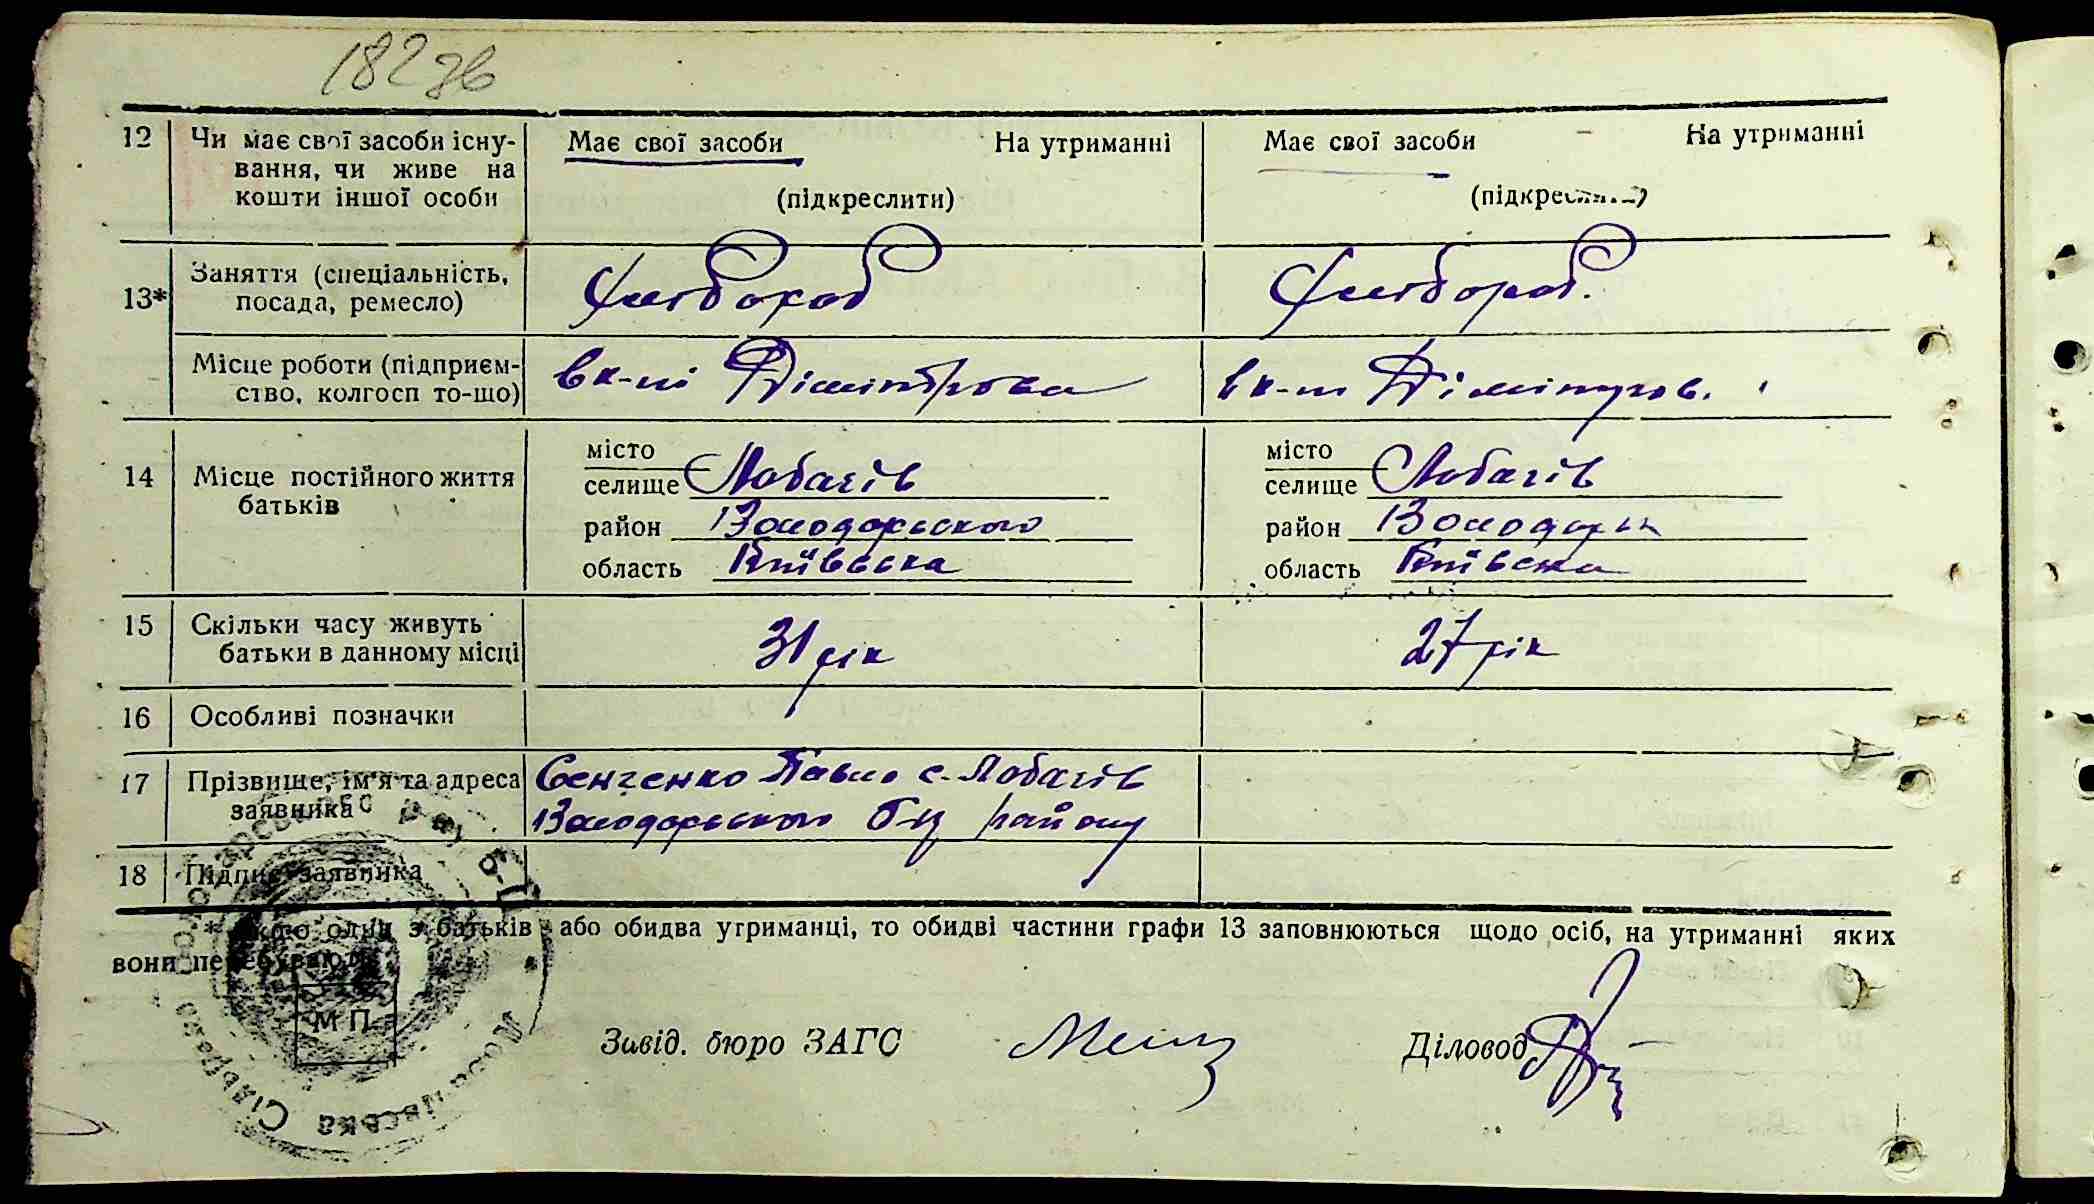 182 зв
12 Чи має свої засоби існу- Має свої засоби На утриманні Має свої засоби На утриманні
вання, чи живе на
кошти іншої особи (підкреслити) (підкреслити)
Заняття (спеціальність, Хлібороб Хлібороб.
13* посада, ремесло)
Місце роботи (підприєм- Дімітрова
ство, колгосп то-що)
місто місто
14 Місце постійного життя селище Лобачів селище Лобачів
батьків район Володарського район Володарськ
область Київська область Київська
15 Скільки часу живуть 31 рік 27 рік
батьки в данному місці
16 Особливі позначки
17 Прізвище, ім'я та адреса Сенченко Павло с. Лобачів
заявника Володарського БЦ району
18 Підпис заявника
* Якщо один з батьків або обидва утриманці, то обидві частини графи 13 заповнюються щодо осіб, на утриманні яких
вони перебувають.
М П
Завід. бюро ЗАГС Діловод